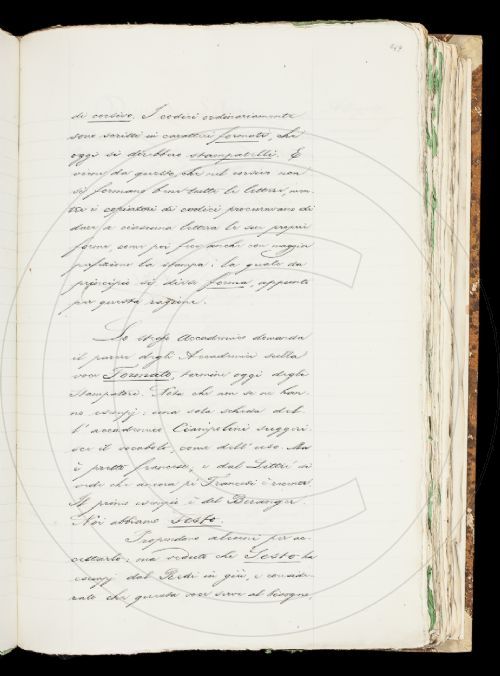 449
di corsivo. I codici ordinariamente
sono scritti in carattere formato, che
oggi si direbbe stampatelli. E
venne da questo, che nel corsivo non
si formano bene tutte le lettere, men-
tre i copiatori di codici procuravano di
dare a ciascuna lettera la sua propria
forma come poi fece anche con maggior
perfezione la stampa: la quale da
principio si disse forma, appunto
per questa ragione.
Lo stesso Accademico domanda
il parere degli Accademici sulla
voce Formato, termine oggi degli
Stampatori. Nota che non se ne han-
no esempj: una sola scheda del-
l'accademico Ciampolini suggeri-
sce il vocabolo, come dell'uso. Ma
è pretto francese, e dal Littré si
vede che ancora pei Francesi è
Il primo esempio è del Beranger.
Noi abbiamo Sesto.
Rispondono alcuni per ac-
cettarlo; ma veduto che Sesto ha
esempj dal Redi in giù, e conside-
rato che questa voce serve al bisogno,